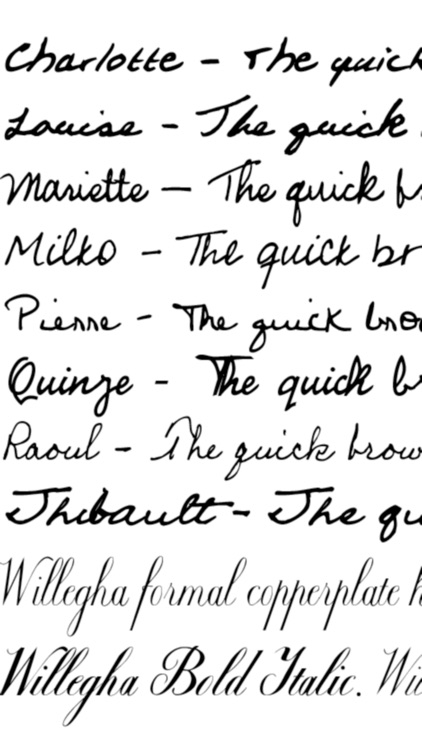 Charlotte - The quick
Louise - The quick
Mariette – The quick b
Milko - The quick br
Pierre - The quick bro
Quinze - The quick b
Raoul - The quick brow
Thibault - The qu
Willegha formal copperplate h
Willegha Bold Italic. Wi